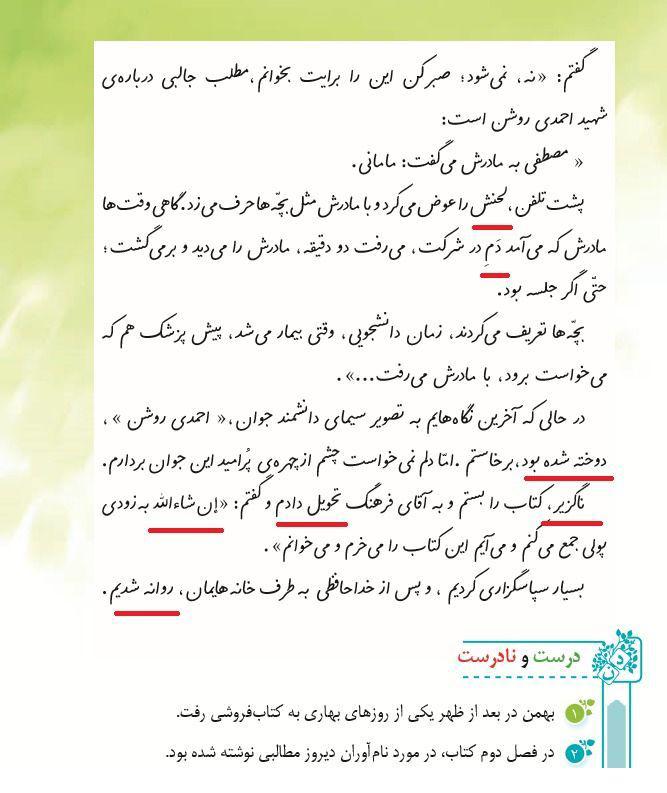 گفتم: «نه، نمی‌شود؛ صبر کن این را برایت بخوانم،مطلب جالبی درباره‌ی
شهید احمدی روشن است:
« مصطفی به مادرش می‌گفت: مامانی.
پشت تلفن،لحنش را عوض می‌کرد و با مادرش مثل بچّه‌ها حرف می‌زد.گاهی وقت‌ها
مادرش که می‌آمد دَمِ در شرکت، می‌رفت دو دقیقه، مادرش را می‌دید و برمی‌گشت؛
حتّی اگر جلسه بود.
بچّه‌ها تعریف می‌کردند، زمان دانشجویی، وقتی بیمار می‌شد، پیش پزشک هم که
می‌خواست برود، با مادرش می‌رفت...».
در حالی که آخرین نگاه‌هایم به تصویر سیمای دانشمند جوان،« احمدی روشن »،
دوخته شده بود،برخاستم .امّا دلم نمی‌خواست چشم از چهره‌ی پُرامید این جوان بردارم.
ناگزیر، کتاب را بستم و به آقای فرهنگ تحویل دادم و گفتم: «إن شاءالله به زودی
پولی جمع می‌کنم و می‌آیم این کتاب را می‌خرم و می‌خوانم».
بسیار سپاسگزاری کردیم ، و پس از خداحافظی به طرف خانه‌هایمان، روانه شدیم.
درست و نادرست
د ن
۱ بهمن در بعد از ظهر یکی از روزهای بهاری به کتاب‌فروشی رفت.
۲ در فصل دوم کتاب، در مورد نام‌آوران دیروز مطالبی نوشته شده بود.